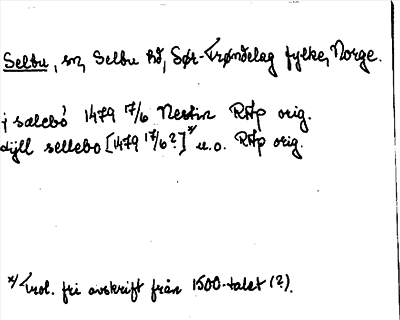 Selbu, sn, Selbu hd, Sør-Trøndelag fylke, Norge.
j sælebó 1479 17/6 Nestin RAp orig.
dijll sellebo [1479 17/6?]*/ u.o. RAp orig.
*/ Trol. fri avskrift från 1500-talet (?).